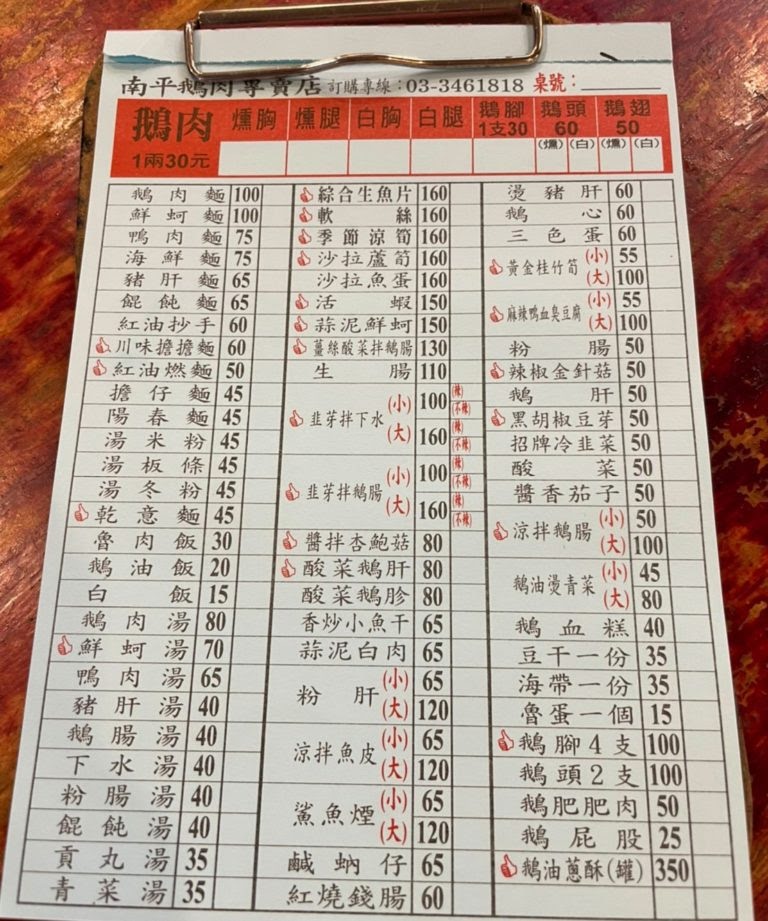 南平鵝肉專賣店 訂購專線：03-3461818 桌號：
鵝肉
1兩30元
燻胸
燻腿
白胸
白腿
鵝腳
1支30
鵝頭
60
(燻) (白)
鵝翅
50
(燻) (白)
鵝肉麵 100
鮮蚵麵 100
鴨肉麵 75
海鮮麵 75
豬肝麵 65
餛飩麵 65
紅油抄手 60
川味擔擔麵 60
紅油燃麵 50
擔仔麵 45
陽春麵 45
湯米粉 45
湯板條 45
湯冬粉 45
乾意麵 45
魯肉飯 30
鵝油飯 20
白飯 15
鵝肉湯 80
鮮蚵湯 70
鴨肉湯 65
豬肝湯 40
鵝腸湯 40
下水湯 40
粉腸湯 40
餛飩湯 40
貢丸湯 35
青菜湯 35
綜合生魚片 160
軟絲 160
季節涼筍 160
沙拉蘆筍 160
沙拉魚蛋 160
活蝦 150
蒜泥鮮蚵 150
薑絲酸菜拌鵝腸 130
生腸 110
韭芽拌下水 (小) 100 (辣) (不辣)
(大) 160 (辣) (不辣)
韭芽拌鵝腸 (小) 100 (辣) (不辣)
(大) 160 (辣) (不辣)
醬拌杏鮑菇 80
酸菜鵝肝 80
酸菜鵝胗 80
香炒小魚干 65
蒜泥白肉 65
粉肝 (小) 65
(大) 120
涼拌魚皮 (小) 65
(大) 120
鯊魚煙 (小) 65
(大) 120
鹹蚋仔 65
紅燒錢腸 60
燙豬肝 60
鵝心 60
三色蛋 60
黃金桂竹筍 (小) 55
(大) 100
麻辣鴨血臭豆腐 (小) 55
(大) 100
粉腸 50
辣椒金針菇 50
鵝肝 50
黑胡椒豆芽 50
招牌冷韭菜 50
酸菜 50
醬香茄子 50
涼拌鵝腸 (小) 50
(大) 100
鵝油燙青菜 (小) 45
(大) 80
鵝血糕 40
豆干一份 35
海帶一份 35
魯蛋一個 15
鵝腳4支 100
鵝頭2支 100
鵝肥肥肉 50
鵝屁股 25
鵝油蔥酥(罐) 350